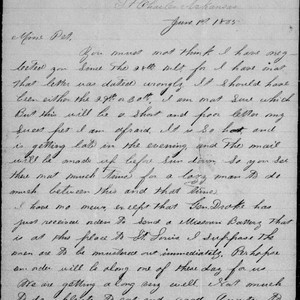 St Charles Arkansas
June 1st 1865
Mine Pet,
You must not think I have neg
lected you since the 28th ult for I have not
that letter was dated wrongly. It should have
been either the 29th or 30th, I am not sure which
But this will be a short and poor letter my
sweet pet I am afraid, it is so hot and
is getting late in the evening and the mail
will be made up before sun down. So you see
there not much time for a lazy man to do
much between this and that time.
I have no news, except that Gen
just received orders to send a Missouri Battery that
is at this place to St Louis I suppose the
men are to be mustered out immediately. Perhaps
an order will be along one of these day for us
We are getting a long very well. Not much